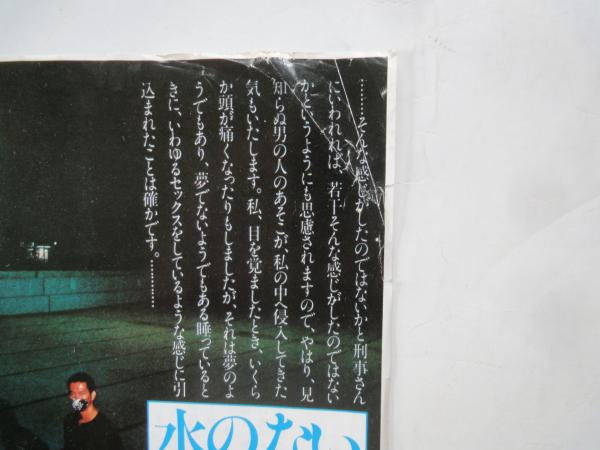 ………そんな感じがしたのではないかと刑事さん
にいわれれば、若干そんな感じがしたのではない
かというようにも思慮されますので、やはり、見
知らぬ男の人のあそこが、私の中へ侵入してきた
気もいたします。私、目を覚ましたとき、いくら
か頭が痛くなったりもしましたが、それは夢のよ
うでもあり、夢でないようでもある睡っていると
きに、いわゆるセックスをしているような感じに引
込まれたことは確かです。…………
水のない